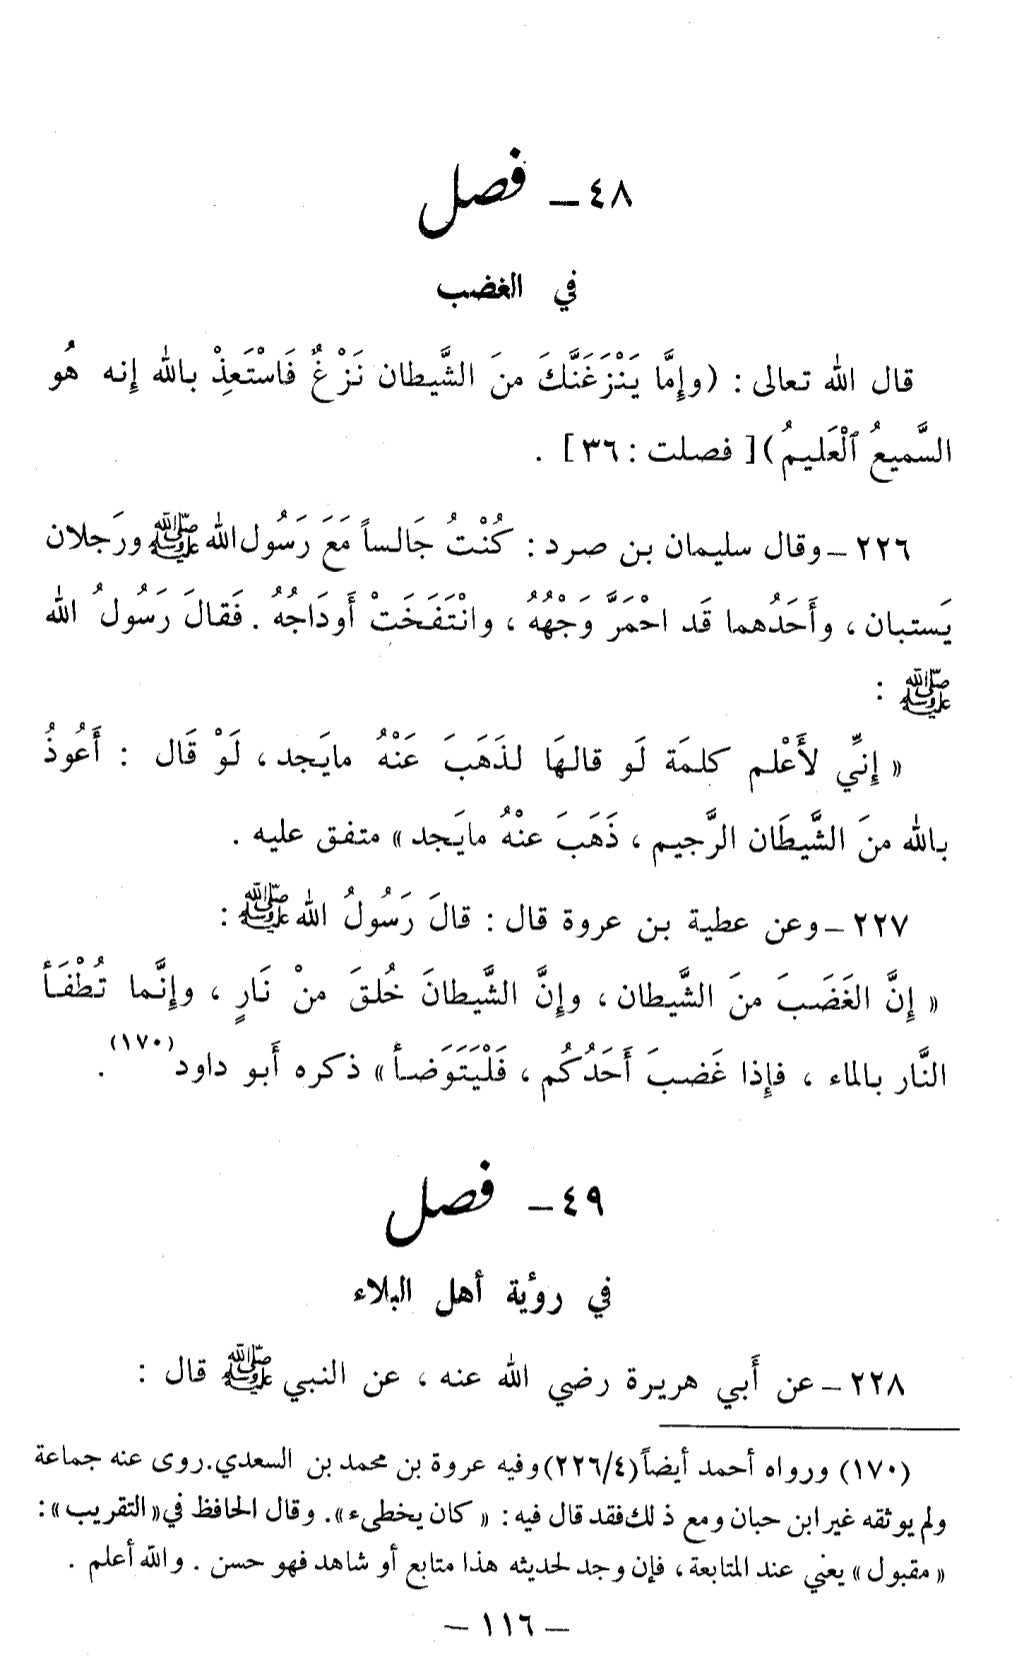 ٤٨ ـ فصل
في الغضب
قال الله تعالى : (وإِمَّا يَنْزَغَنَّكَ منَ الشَّيطان نَزْغٌ فَاسْتَعِذْ بالله إِنه هُو
السَّميعُ ٱلْعَليمُ)[ فصلت : ٣٦] .
٢٢٦ ـ وقال سليمان بن صرد : كُنْتُ جَالساً مَعَ رَسُول الله ﷺ ورَجلان
يَستبان ، وأَحَدُهما قَد احْمَرَّ وَجْهُهُ ، وانْتَفَخَتْ أَودَاجُهُ . فَقالَ رَسُولُ الله
ﷺ :
« إِنِّي لأَعْلم كلمَة لَو قالهَا لذَهَبَ عَنْهُ مايَجد ، لَوْ قَال : أَعُوذُ
بالله منَ الشَّيطَان الرَّجيم ، ذَهَبَ عنْهُ مايَجد » متفق عليه .
٢٢٧ ـ وعن عطية بن عروة قال : قالَ رَسُولُ الله ﷺ :
« إِنَّ الغَضَبَ منَ الشَّيطان ، وإِنَّ الشَّيطانَ خُلقَ منْ نَارٍ ، وإِنَّما تُطْفَأ
النَّار بالماء ، فإِذا غَضبَ أَحَدُكُم ، فَلْيَتَوَضأ » ذكره أَبو داود (١٧٠) .
٤٩ ـ فصل
في رؤية أهل البلاء
٢٢٨ ـ عن أَبي هريرة رضي الله عنه ، عن النبي ﷺ قال :
(١٧٠) ورواه أحمد أيضاً (٢٢٦/٤) وفيه عروة بن محمد بن السعدي. روى عنه جماعة
ولم يوثقه غير ابن حبان ومع ذلك فقد قال فيه : « كان يخطىء ». وقال الحافظ في « التقريب » :
« مقبول » يعني عند المتابعة ، فإن وجد لحديثه هذا متابع أو شاهد فهو حسن . والله أعلم .
ـ ١١٦ ـ